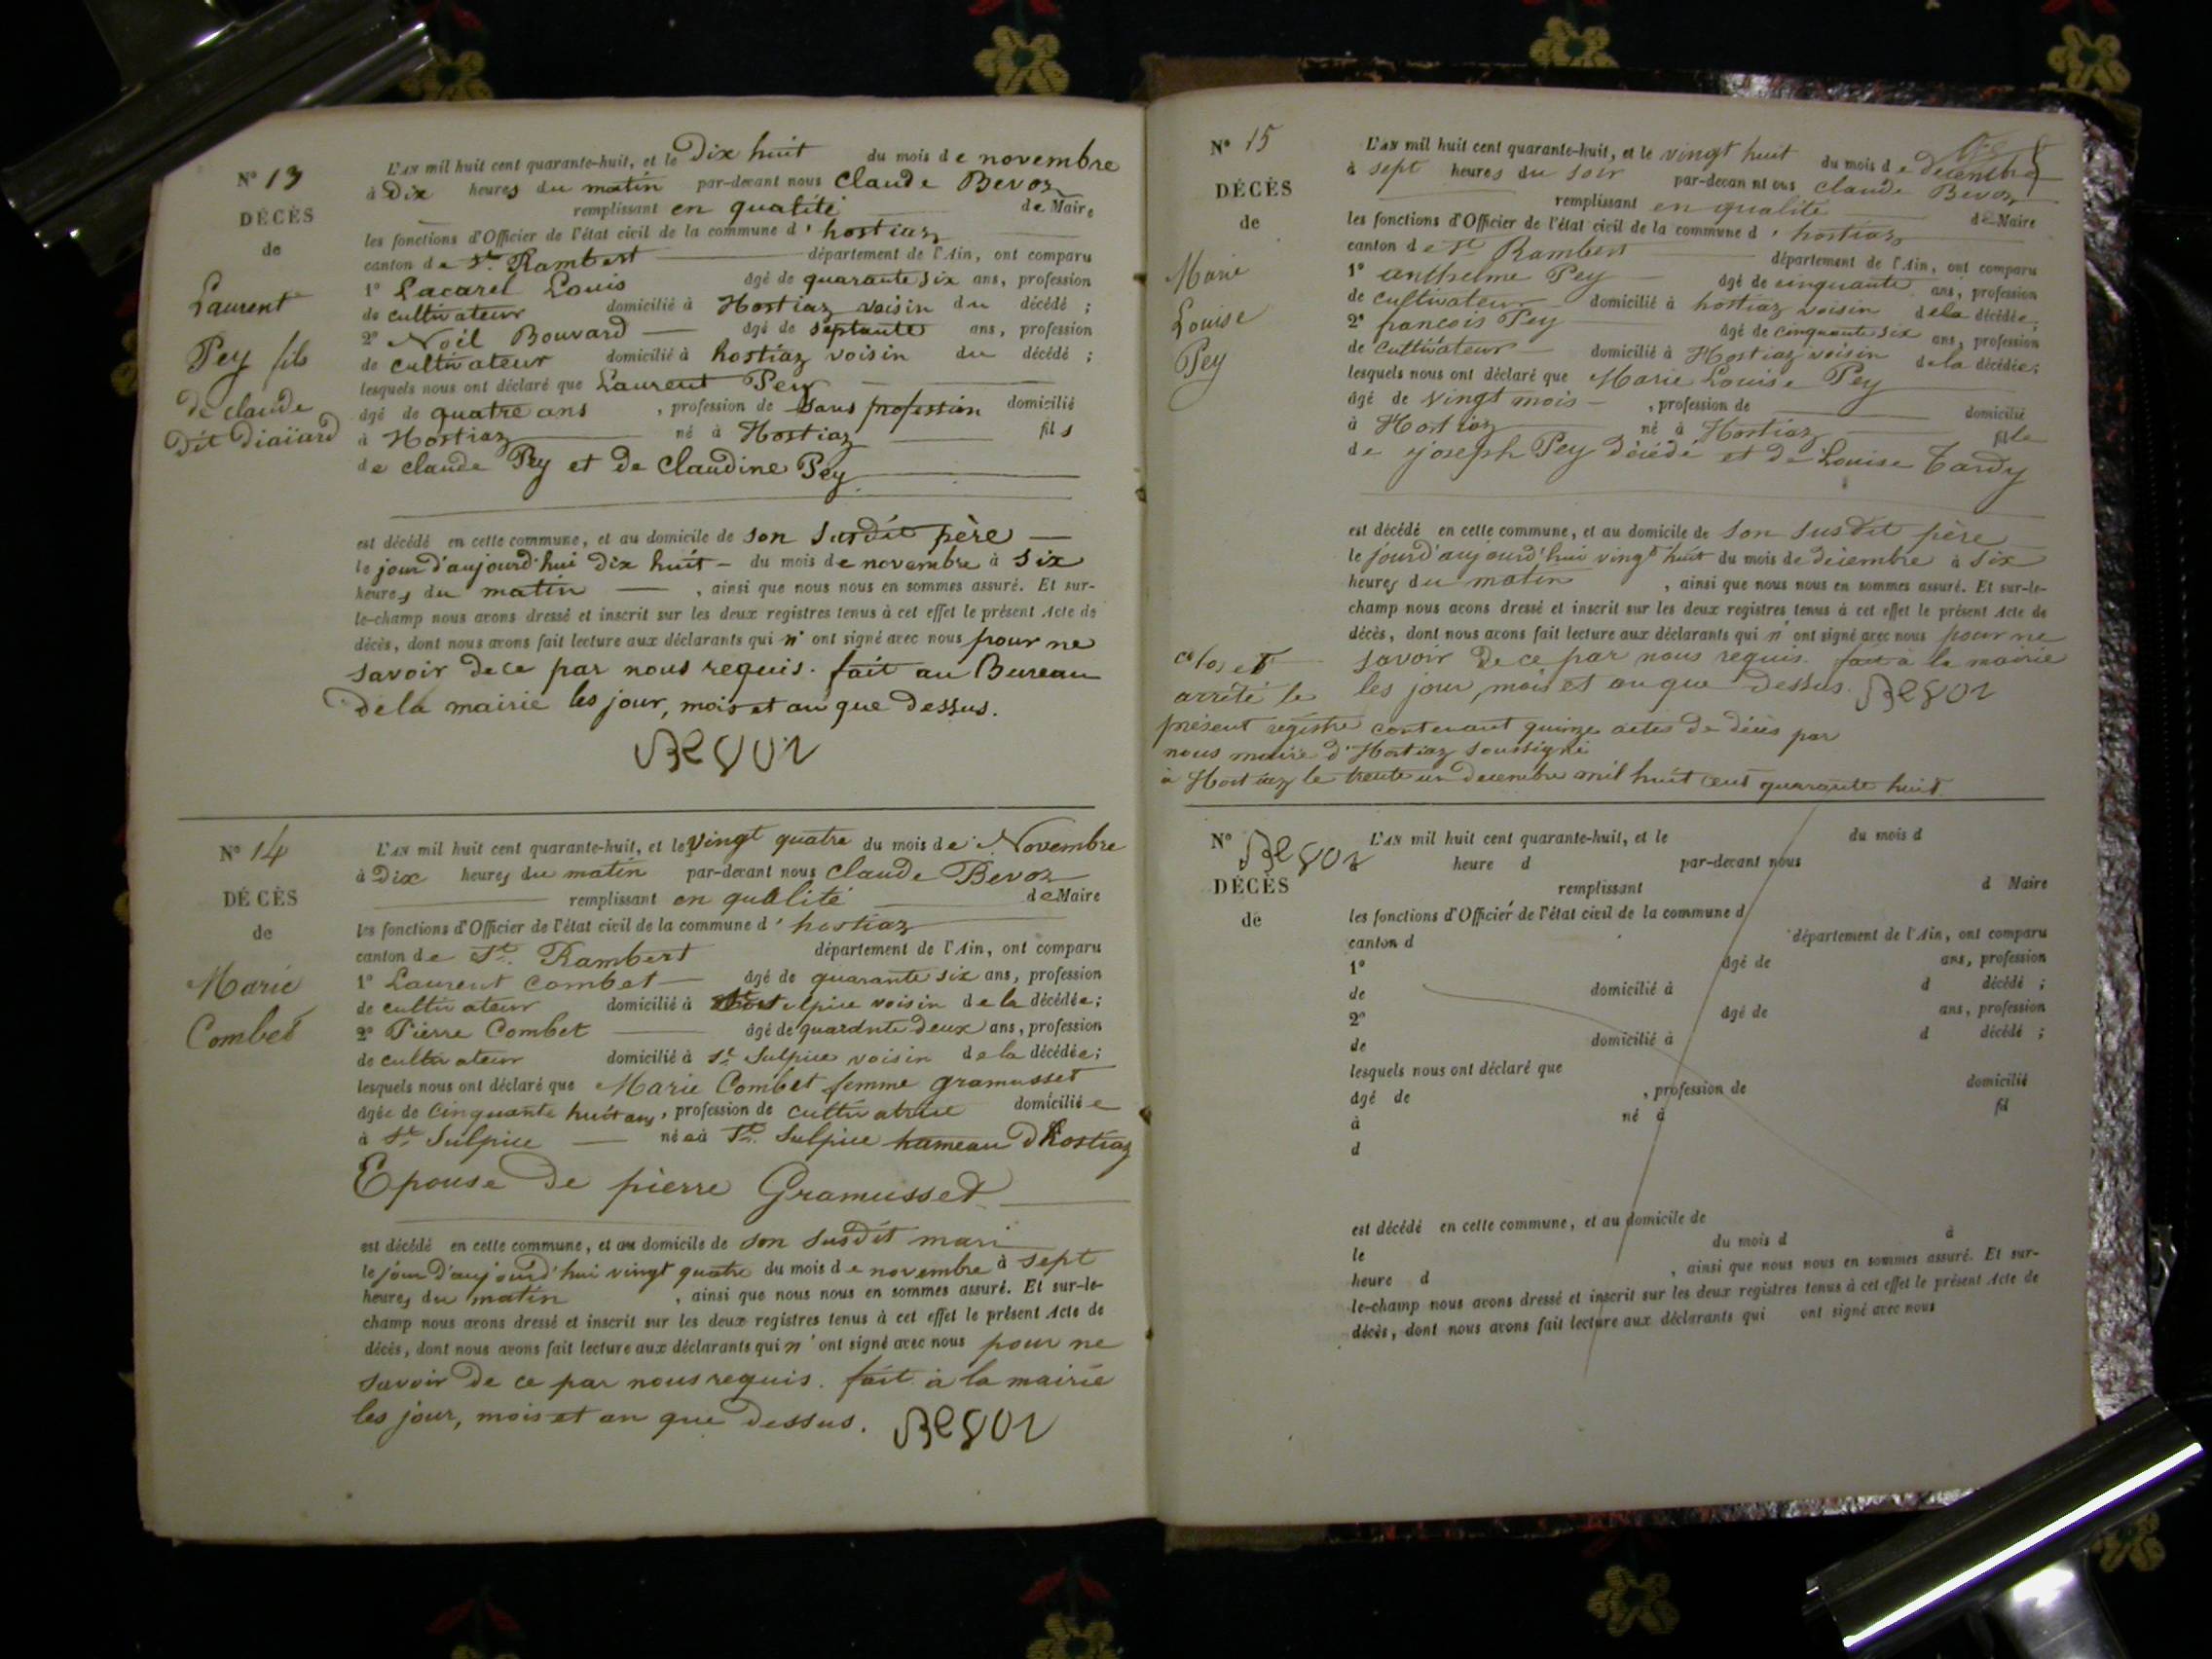 N° 13
DÉCÈS
de
Laurent
Pey fils
de claude
Dit Diaïard
L'AN mil huit cent quarante-huit, et le Dix huit du mois de novembre
à Dix heures du matin par-devant nous Claude Bevoz
remplissant en qualité de Maire
les fonctions d'Officier de l'état civil de la commune d'hostiaz
canton de St. Rambert département de l'Ain, ont comparu
1° Lacarel Louis âgé de quarante six ans, profession
de cultivateur domicilié à Hostiaz voisin du décédé ;
2° Noël Bouvard âgé de septante ans, profession
de cultivateur domicilié à hostiaz voisin du décédé ;
lesquels nous ont déclaré que Laurent Pey
âgé de quatre ans , profession de sans profession domicilié
à Hostiaz né à Hostiaz fils
de claude Pey et de Claudine Pey
est décédé en cette commune, et au domicile de son susdit père
le jour d'aujourd'hui Dix huit du mois de novembre à six
heures du matin , ainsi que nous nous en sommes assuré. Et sur-
le-champ nous avons dressé et inscrit sur les deux registres tenus à cet effet le présent Acte de
décès, dont nous avons fait lecture aux déclarants qui n'ont signé avec nous pour ne
savoir de ce par nous requis. fait au Bureau
De la mairie les jour, mois et an que dessus.
Bevoz
N° 14
DÉCÈS
de
Marie
Combet
L'AN mil huit cent quarante-huit, et le vingt quatre du mois de Novembre
à Dix heures du matin par-devant nous Claude Bevoz
remplissant en qualité de Maire
les fonctions d'Officier de l'état civil de la commune d'hostiaz
canton de St. Rambert département de l'Ain, ont comparu
1° Laurent Combet âgé de quarante six ans, profession
de cultivateur domicilié à St sulpice voisin de la décédée ;
2° Pierre Combet âgé de quarante Deux ans, profession
de cultivateur domicilié à St Sulpice voisin de la décédée ;
lesquels nous ont déclaré que Marie Combet femme gramusset
âgée de Cinquante huit ans, profession de cultivatrice domiciliée
à St Sulpice née à St. Sulpice hameau D'hostiaz
Epouse De pierre Gramusset
est décédé en cette commune, et au domicile de son susdit mari
le jour d'aujourd'hui vingt quatre du mois de novembre à sept
heures du matin , ainsi que nous nous en sommes assuré. Et sur-le-
champ nous avons dressé et inscrit sur les deux registres tenus à cet effet le présent Acte de
décès, dont nous avons fait lecture aux déclarants qui n'ont signé avec nous pour ne
savoir De ce par nous requis. fait à la mairie
les jour, mois et an que Dessus. Bevoz
N° 15
DÉCÈS
de
Marie
Louise
Pey
L'AN mil huit cent quarante-huit, et le vingt huit du mois de decembre
à sept heures du soir par-devan nt ous Claude Bevoz
remplissant en qualité de Maire
les fonctions d'Officier de l'état civil de la commune d'hostiaz
canton de St. Rambert département de l'Ain, ont comparu
1° anthelme Pey âgé de cinquante ans, profession
de cultivateur domicilié à hostiaz voisin de la décédée ;
2° francois Pey âgé de cinquante six ans, profession
de cultivateur domicilié à Hostiaz voisin de la décédée ;
lesquels nous ont déclaré que Marie Louise Pey
âgé de vingt mois , profession de domicilié
à Hostiaz né à Hostiaz fille
de joseph Pey décédé et de Louise Tardy
est décédé en cette commune, et au domicile de son susdit père
le jour d'aujourd'hui vingt huit du mois de décembre à six
heures du matin , ainsi que nous nous en sommes assuré. Et sur-le-
champ nous avons dressé et inscrit sur les deux registres tenus à cet effet le présent Acte de
décès, dont nous avons fait lecture aux déclarants qui n'ont signé avec nous pour ne
savoir De ce par nous requis. fait à la mairie
les jour, mois et an que Dessus. Bevoz
clos et
arrêté le
présent registre contenant quinze actes de décès par
nous maire d'Hostiaz soussigné
à Hostiaz le trente un decembre mil huit cent quarante huit.
Bevoz
N°
DÉCÈS
de
L'AN mil huit cent quarante-huit, et le du mois d
heure d par-devant nous
remplissant d Maire
les fonctions d'Officier de l'état civil de la commune d
canton d département de l'Ain, ont comparu
1° âgé de ans, profession
de domicilié à d décédé ;
2° âgé de ans, profession
de domicilié à d décédé ;
lesquels nous ont déclaré que
âgé de , profession de domicilié
à né à fil
d
est décédé en cette commune, et au domicile de
le du mois d à
heure d , ainsi que nous nous en sommes assuré. Et sur-
le-champ nous avons dressé et inscrit sur les deux registres tenus à cet effet le présent Acte de
décès, dont nous avons fait lecture aux déclarants qui ont signé avec nous